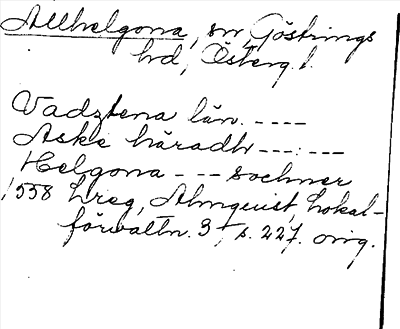 Allhelgona, sn, Göstrings
hd, Österg. l.
Vadztena län. ----
Aske häradh ---:---
Helgona --- sochner
1558 Lreg, Almquist, Lokal-
förvaltn. 3, s. 227. orig.